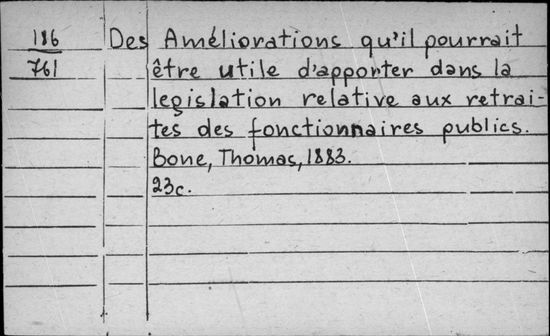 186
761
Des Améliorations qu'il pourrait
être utile d'apporter dans la
legislation relative aux retrai-
tes des fonctionnaires publics.
Bone, Thomas, 1883.
23c.